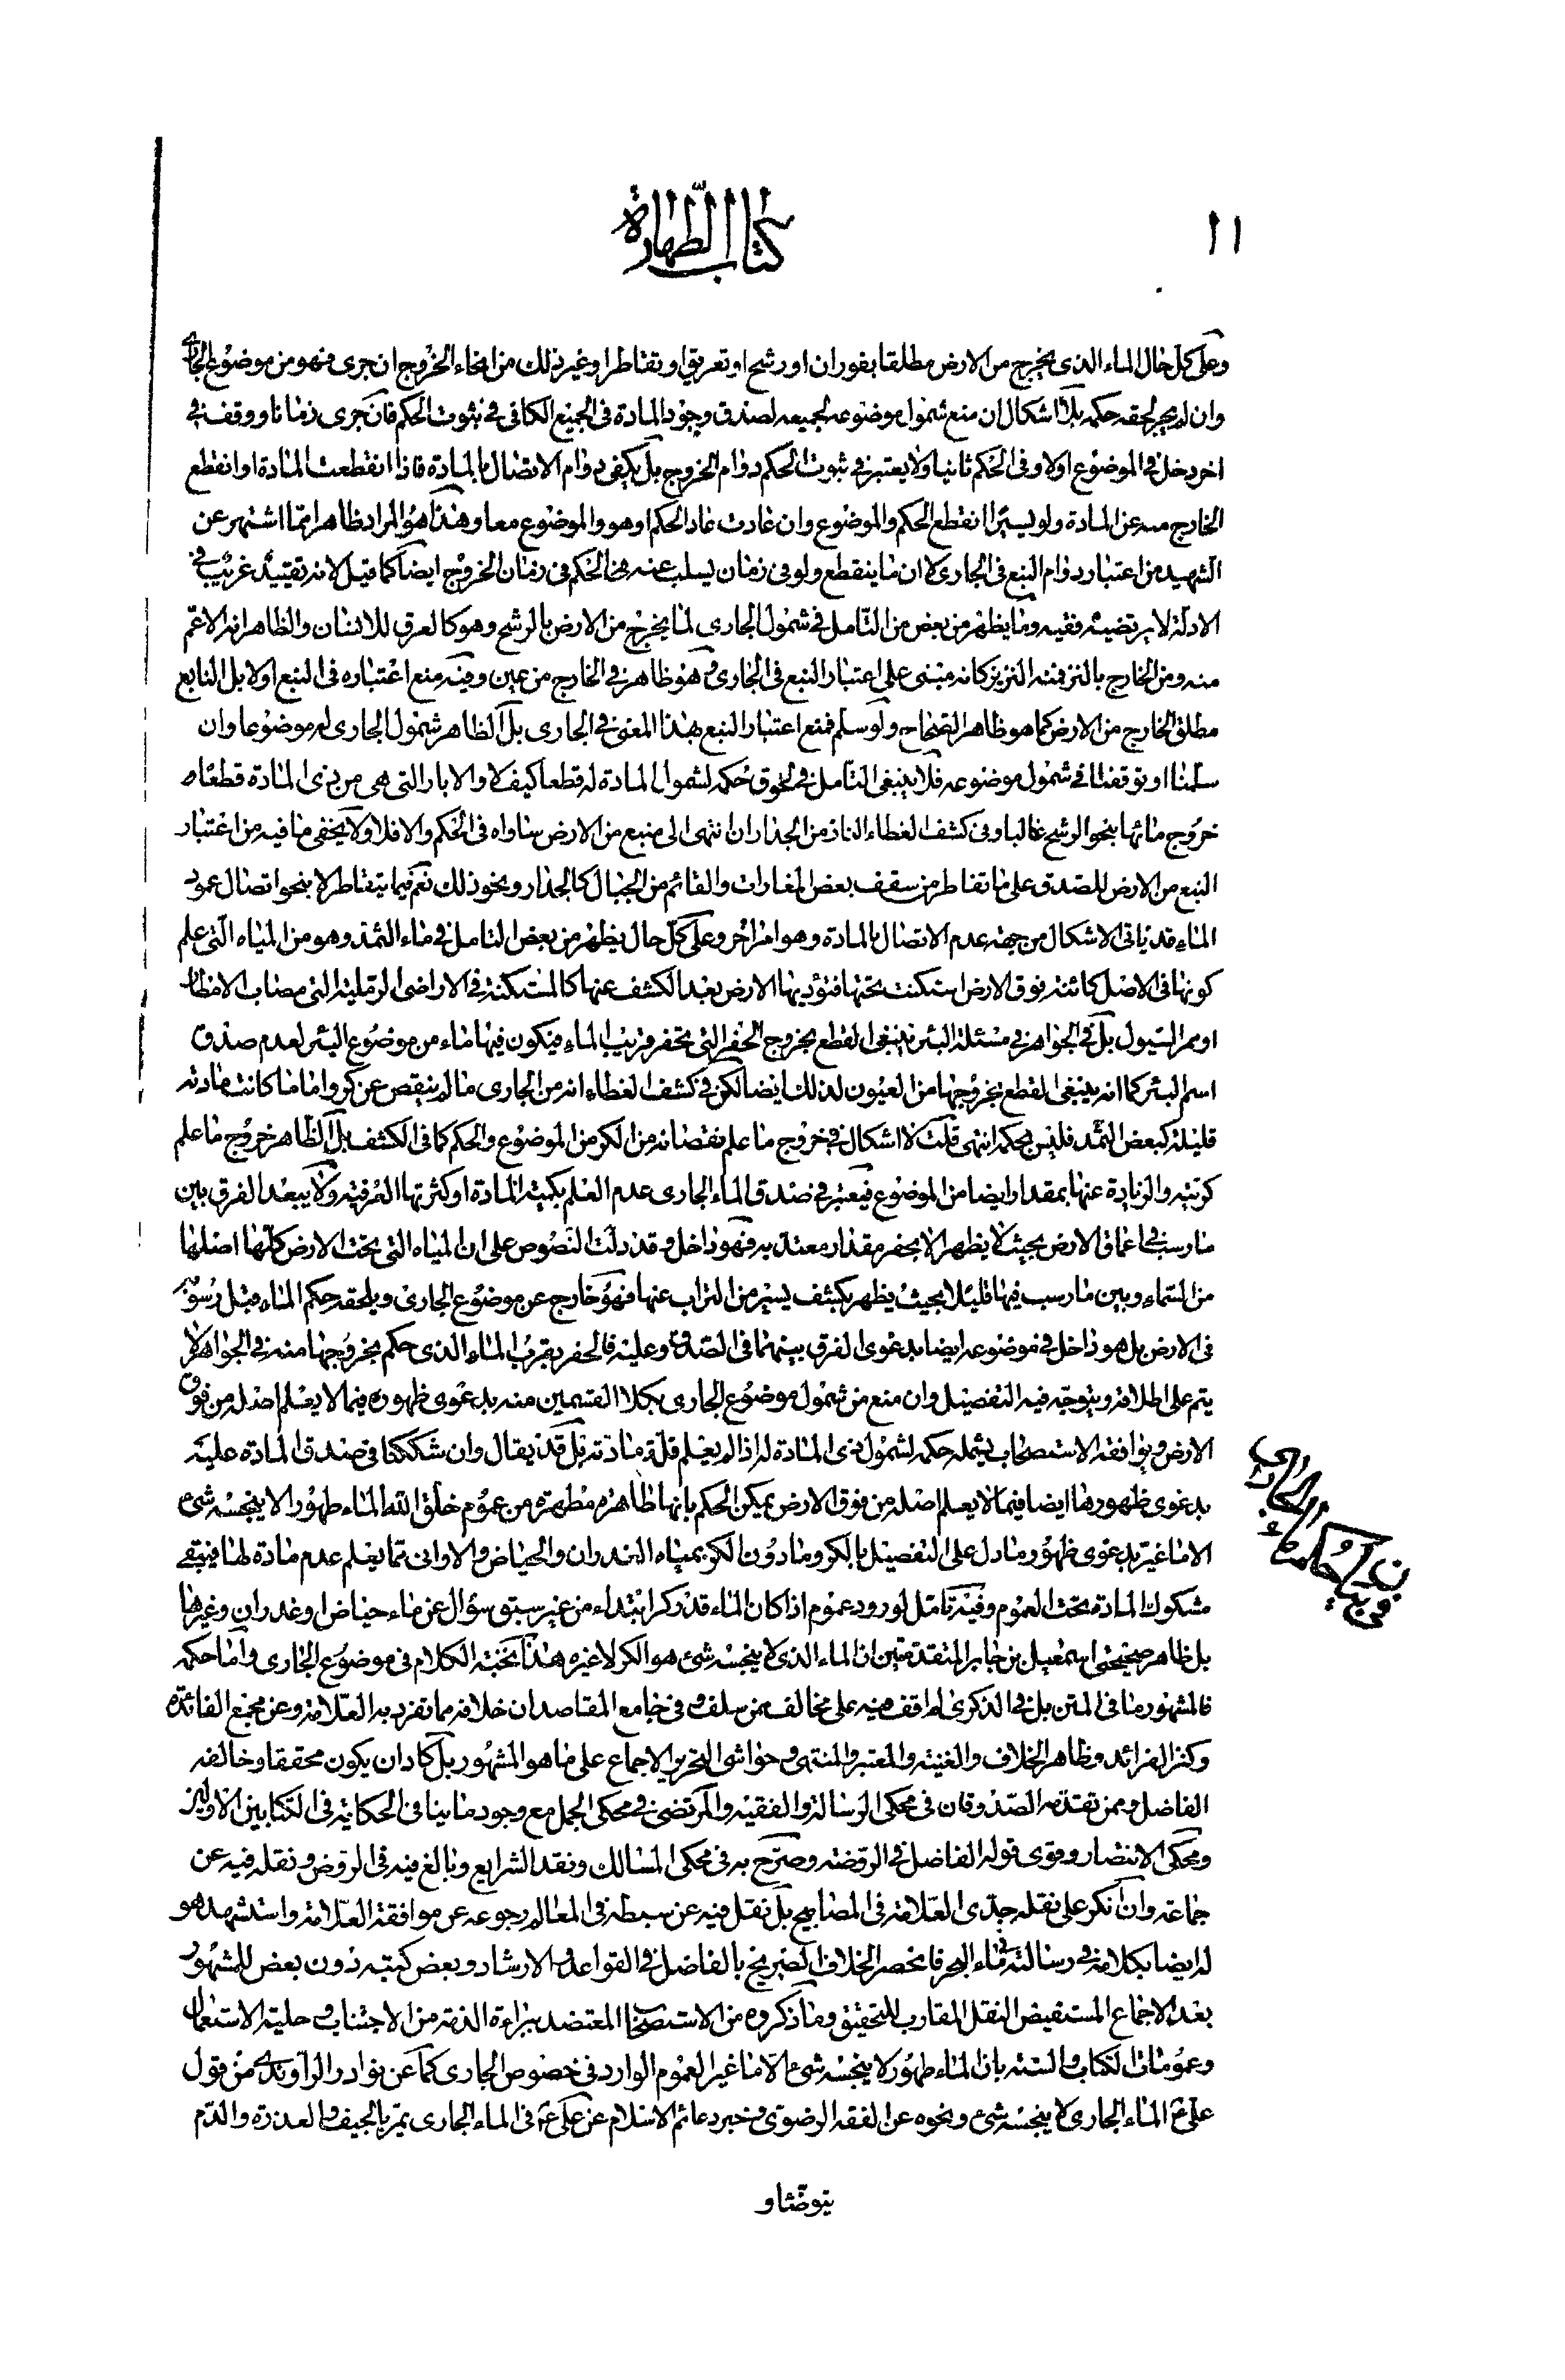 ١١
كتاب الطهارة
وعلى كل حال الماء الذى يخرج من الارض مطلقا بفوران اورشح او تعريق او تقاطر او غير ذلك من انحاء الخروج ان جرى فهو من موضوع الجارى
وان لم يجر لحقه حكمه بلا اشكال ان منع شمول موضوعه لجميعه لصدق وجود المادة فى الجميع الكافى فى ثبوت الحكم فان جرى زمانا ووقف فى
اخر دخل فى الموضوع اولا وفى الحكم ثانيا ولا يعتبر فى ثبوت الحكم دوام الخروج بل يكفى دوام الاتصال بالمادة فاذا انقطعت المادة او انقطع
الخارج منه عن المادة ولو يسيرا انقطع الحكم والموضوع وان عادت عاد الحكم او هو والموضوع معا وهذا هو المراد ظاهرا مما اشتهر عن
الشهيد من اعتبار دوام النبع فى الجارى لا ان ما ينقطع ولو فى زمان يسلب عنه هذا الحكم فى زمان الخروج ايضا كما قيل لانه تقييد غريب فى
الادلة لا يرتضيه فقيه وما يظهر من بعض من التامل فى شمول الجارى لما يخرج من الارض بالرشح وهو كالعرق للانسان والظاهر انه الاعم
منه ومن الخارج بالنز فمنه النزيز كانه مبنى على اعتبار النبع فى الجارى وهو ظاهر فى الخارج من عين وفيه منع اعتباره فى النبع اولا بل النابع
مطلق الخارج من الارض كما هو ظاهر الصحاح ولو سلم فمنع اعتبار النبع بهذا المعنى فى الجارى بل الظاهر شمول الجارى له موضوعا وان
سلمنا او توقفنا فى شمول موضوعه فلا ينبغى التامل فى لحوق حكمه لشمول المادة له قطعا كيف لا والابار التى هى من ذى المادة قطعا
خروج مائها بنحو الرشح غالبا وفى كشف الغطاء الناز من الجدار ان انتهى الى منبع من الارض ساواه فى الحكم والا فلا ولا يخفى ما فيه من اعتبار
النبع من الارض للصدق على ما تقاطر من سقف بعض المغارات والقائم من الجبال كالجدار ونحو ذلك نعم فيما يتقاطر لا بنحو اتصال عمود
الماء قد ياتى الاشكال من جهة عدم الاتصال بالمادة وهو امر اخر وعلى كل حال يظهر من بعض التامل فى ماء الثمد وهو من المياه التى علم
كونها فى الاصل كائنة فوق الارض استكنت تحتها فتؤديها الارض بعد الكشف عنها كالمستكنة فى الاراضى الرملية التى مصاب الامطار
او ممر السيول بل فى الجواهر فى مسئلة البئر ينبغى القطع بخروج الحفر التى تحفر قريب الماء فيكون فيها ماء من موضوع البئر لعدم صدق
اسم البئر كما انه ينبغى القطع بخروجها من العيون لذلك ايضا لكن فى كشف الغطاء انه من الجارى ما لم ينقص عن كر واما ما كانت مادته
قليلة كبعض الثمد فليس بحكمه انتهى قلت لا اشكال فى خروج ما علم نقصانه من الكر من الموضوع والحكم كما فى الكشف بل الظاهر خروج ما علم
كريته والزيادة عنها بمقدار ايضا من الموضوع فيعتبر فى صدق الماء الجارى عدم العلم بكمية المادة او كثرتها العرفية ولا يبعد الفرق بين
ما رسب فى اعماق الارض بحيث لا يظهر الا بحفر مقدار معتد به فهو داخل وقد دلت النصوص على ان المياه التى تحت الارض كلها اصلها
من السماء وبين ما رسب فيها قليلا بحيث يظهر بكشف يسير من التراب عنها فهو خارج عن موضوع الجارى ويلحقه حكم الماء قبل رسوبه
فى الارض بل هو داخل فى موضوعه ايضا بدعوى الفرق بينهما فى الصدق وعليه فالحفر بقرب الماء الذى حكم بخروجها منه فى الجواهر لا
يتم على اطلاقه ويتوجه فيه التفصيل وان منع من شمول موضوع الجارى بكلا القسمين منه بدعوى ظهوره فيما لا يعلم اصله من فوق
الارض ويوافقه الاستصحاب يشمله حكمه لشمول ذى المادة له اذا لم يعلم قلة مادته بل قد يقال وان شككنا فى صدق المادة عليه
بدعوى ظهورها ايضا فيما لا يعلم اصله من فوق الارض يمكن الحكم بانها طاهرة مطهرة من عموم خلق الله الماء طهورا لا ينجسه شئ
الا ما غيره بدعوى ظهور ما دل على التفصيل بالكر وما دون الكر بمياه الغدران والحياض والاوانى مما يعلم عدم مادة لها فيبقى
مشكوك المادة تحت العموم وفيه تامل لورود عموم اذا كان الماء قدر كر ابتداء من غير سبق سؤال عن ماء حياض او غدران وغيرها
بل ظاهر صحيحتى اسمعيل بن جابر المتقدمتين ان الماء الذى لا ينجسه شئ هو الكر لا غيره هذا نخبة الكلام فى موضوع الجارى واما حكمه
فالمشهور ما فى المتن بل فى الذكرى لم اقف فيه على مخالف ممن سلف وفى جامع المقاصد ان خلافه مما تفرد به العلامة وعن مجمع الفائدة
وكنز الفرائد وظاهر الخلاف والغنية والمعتبر والمنتهى وحواشى التحرير الاجماع على ما هو المشهور بل كاد ان يكون محققا وخالفه
الفاضل وممن تقدمه الصدوقان فى محكى الرسالة والفقيه والمرتضى فى محكى الجمل مع وجود ما ينافى الحكاية فى الكتابين الاولين
ومحكى الانتصار وقوى قوله الفاضل فى الروضة وصرح به فى محكى المسالك ونقد الشرايع وبالغ فيه فى الروض ونقله فيه عن
جماعة وان انكر على نقله جدى العلامة فى المصابيح بل نقل فيه عن سبطه فى المعالم رجوعه عن موافقة العلامة واستشهد هو
له ايضا بكلامه فى رسالته فى ماء البئر فانحصر الخلاف الصريح بالفاضل فى القواعد والارشاد وبعض كتبه دون بعض للمشهور
بعد الاجماع المستفيض النقل المقارب للتحقيق وما ذكروه من الاستصحاب المعتضد ببراءة الذمة من الاجتناب وحلية الاستعمال
وعمومات الكتاب والسنة بان الماء طهور لا ينجسه شئ الا ما غير العموم الوارد فى خصوص الجارى كما عن نوادر الراوندى من قول
على ع الماء الجارى لا ينجسه شئ ونحوه عن الفقه الرضوى وخبر دعائم الاسلام عن على ع فى الماء الجارى يمر بالجيف والعذرة والدم
يتوضأ و